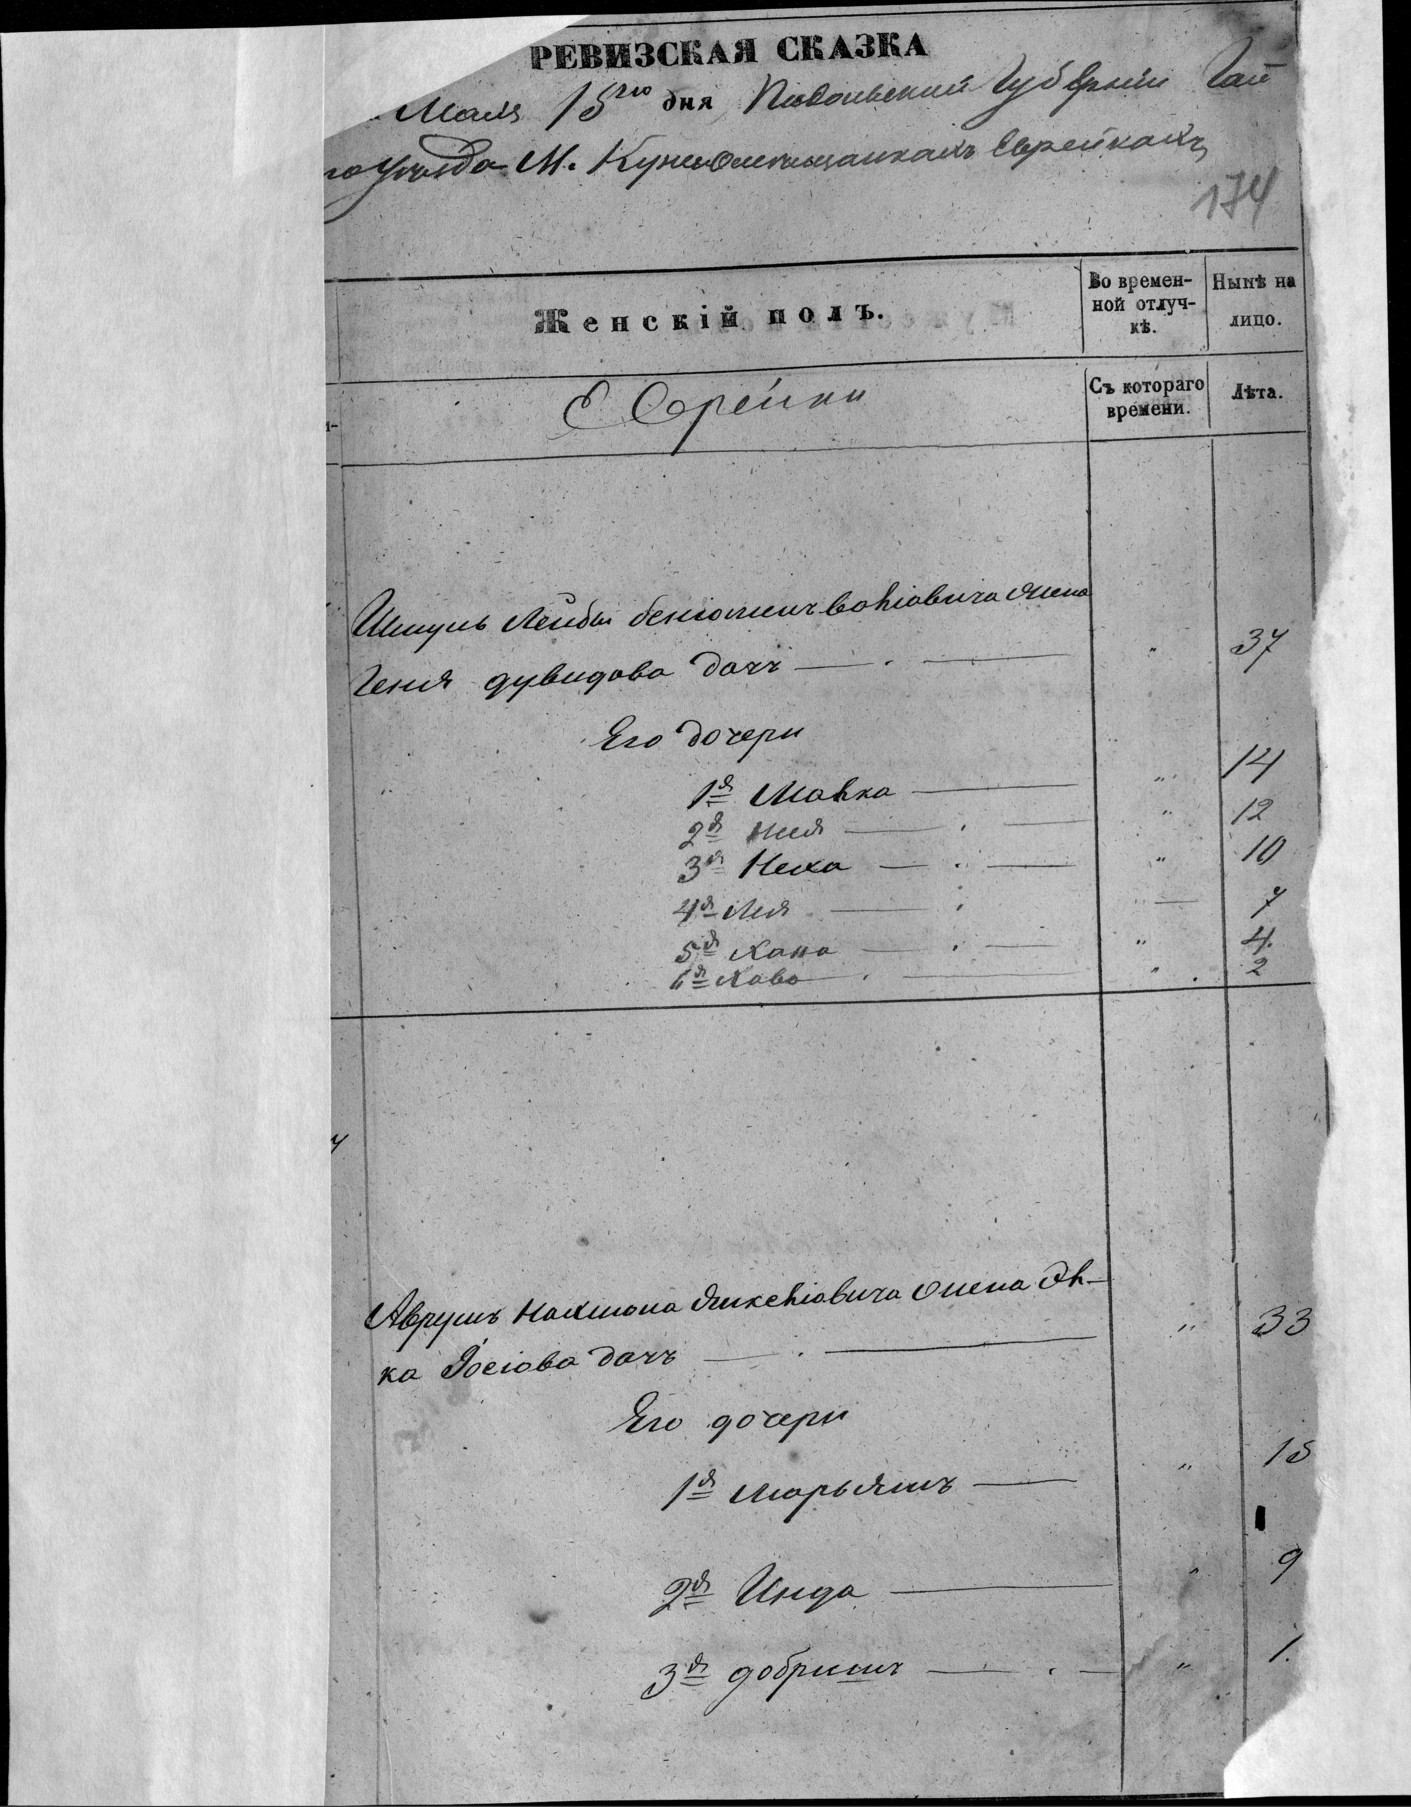 РЕВИЗСКАЯ СКАЗКА
Маия 15го дня Подольской Губернии Гай
го уезда М. Куны о мещанкахъ Еврейкахъ
174
Женскій полъ.
Во времен-
ной отлуч-
кѣ.
Нынѣ на
лицо.
Еврейки
Съ котораго
времени.
Лѣта.
Лейбы жена
Геня дувидова дочь " 37
Его дочери
1я " 14
2я " 12
3я Неха " 10
4я Лея " 7
5я Хана " 4.
6я Хава " 2
Аврумъ Нахмана жена
ка Іосіова дочъ " 33
Его дочери
1я Марьямъ " 15
2я Инда " 9
3я добришъ " 1.